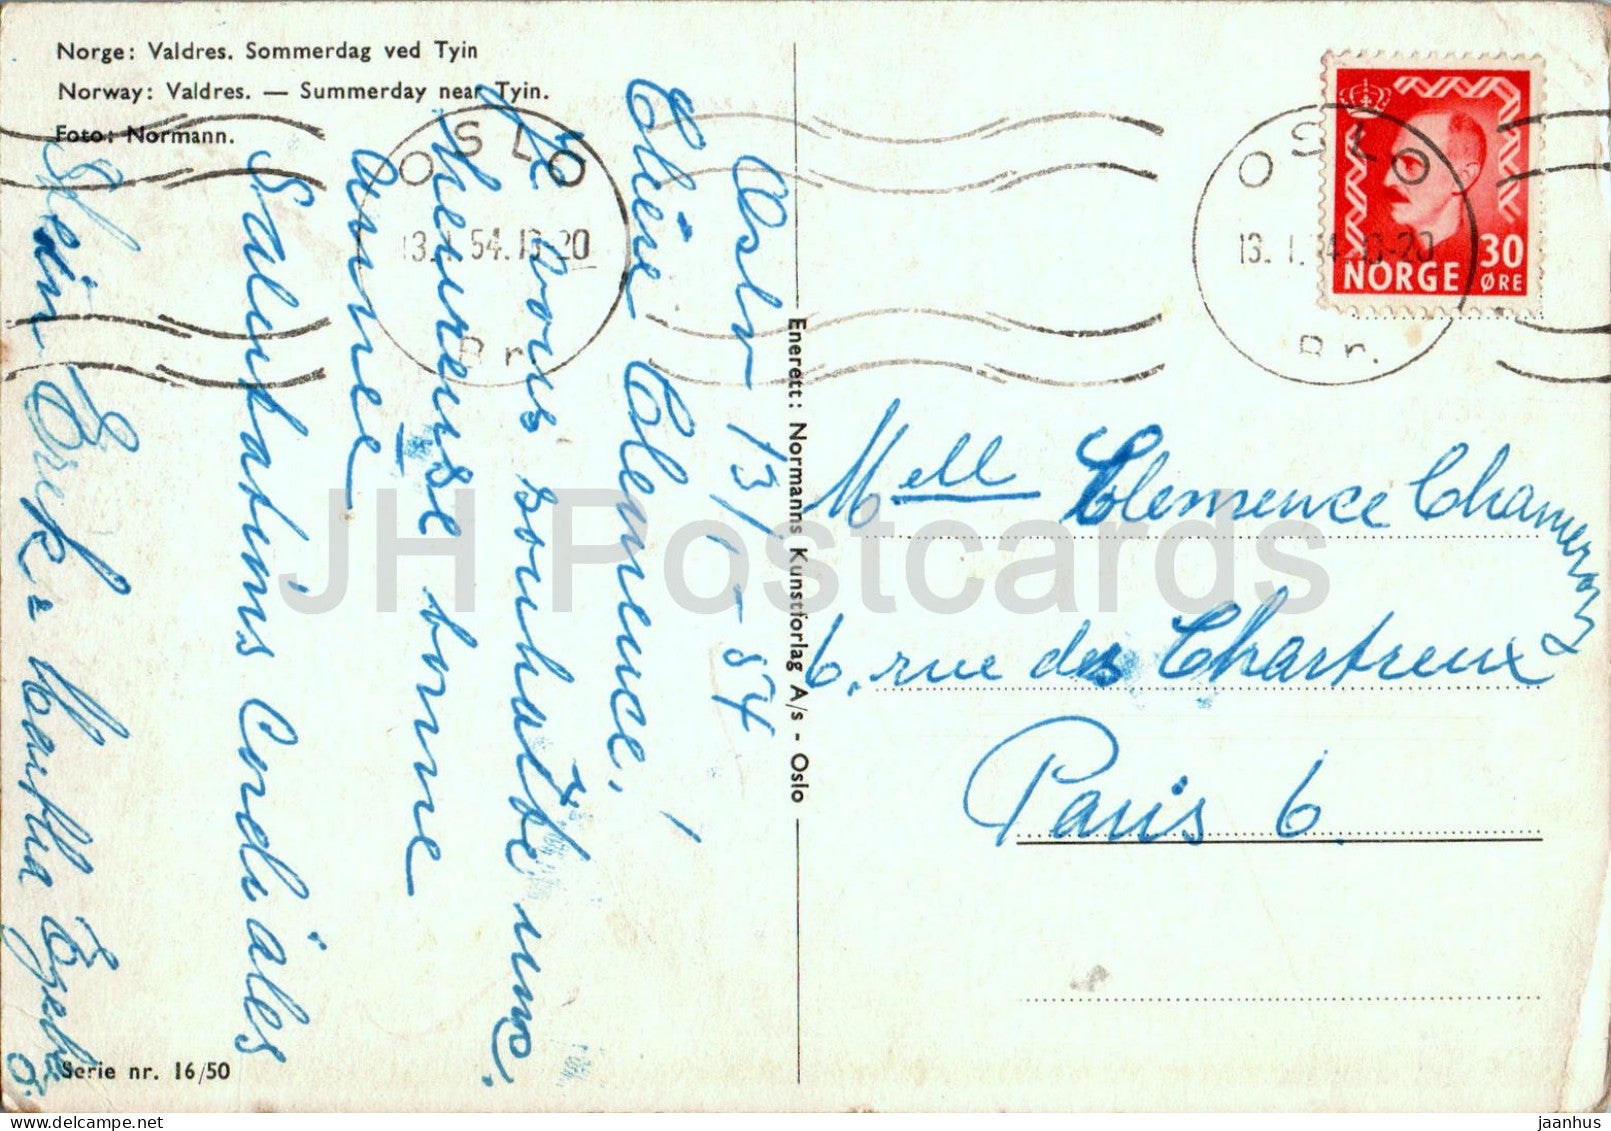 Norge: Valdres. Sommerdag ved Tyin
Norway: Valdres. — Summerday near Tyin.
Foto: Normann.
OSLO
13. 1. 54. 13-20
Br.
OSLO
13. 1. 54. 13-20
Br.
NORGE
30
ØRE
Oslo 13/1-54
Chère Clemence!
Je vous souhaite une
heureuse bonne
anne
Salutatins Cordiales
Stein Erik - Martha
Mell Clemence Chameroy
6. rue des Chartreux
Paris 6.
Enerett: Normanns Kunstforlag A/s - Oslo
Serie nr. 16/50
JH Postcards
delcampe.net
jaanhus